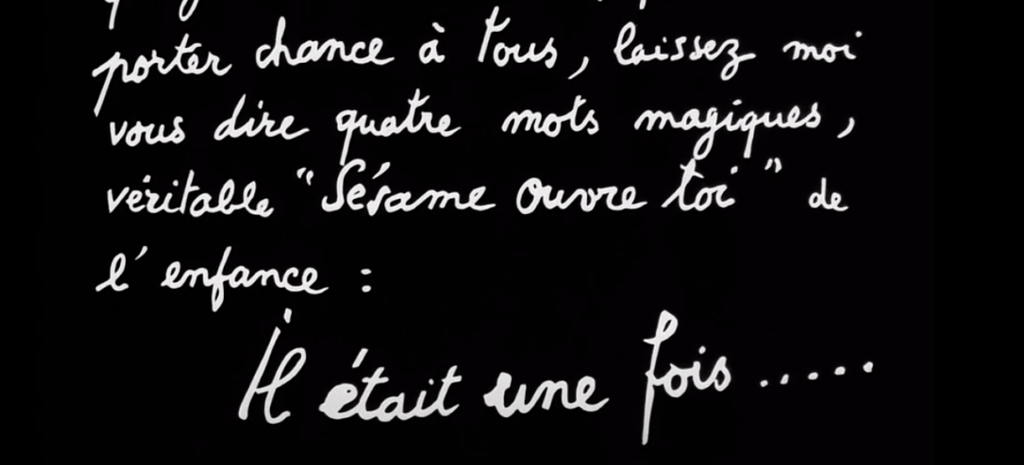 porter chance à tous, laissez moi
vous dire quatre mots magiques,
véritable "Sésame ouvre toi" de
l'enfance :
Il était une fois.....